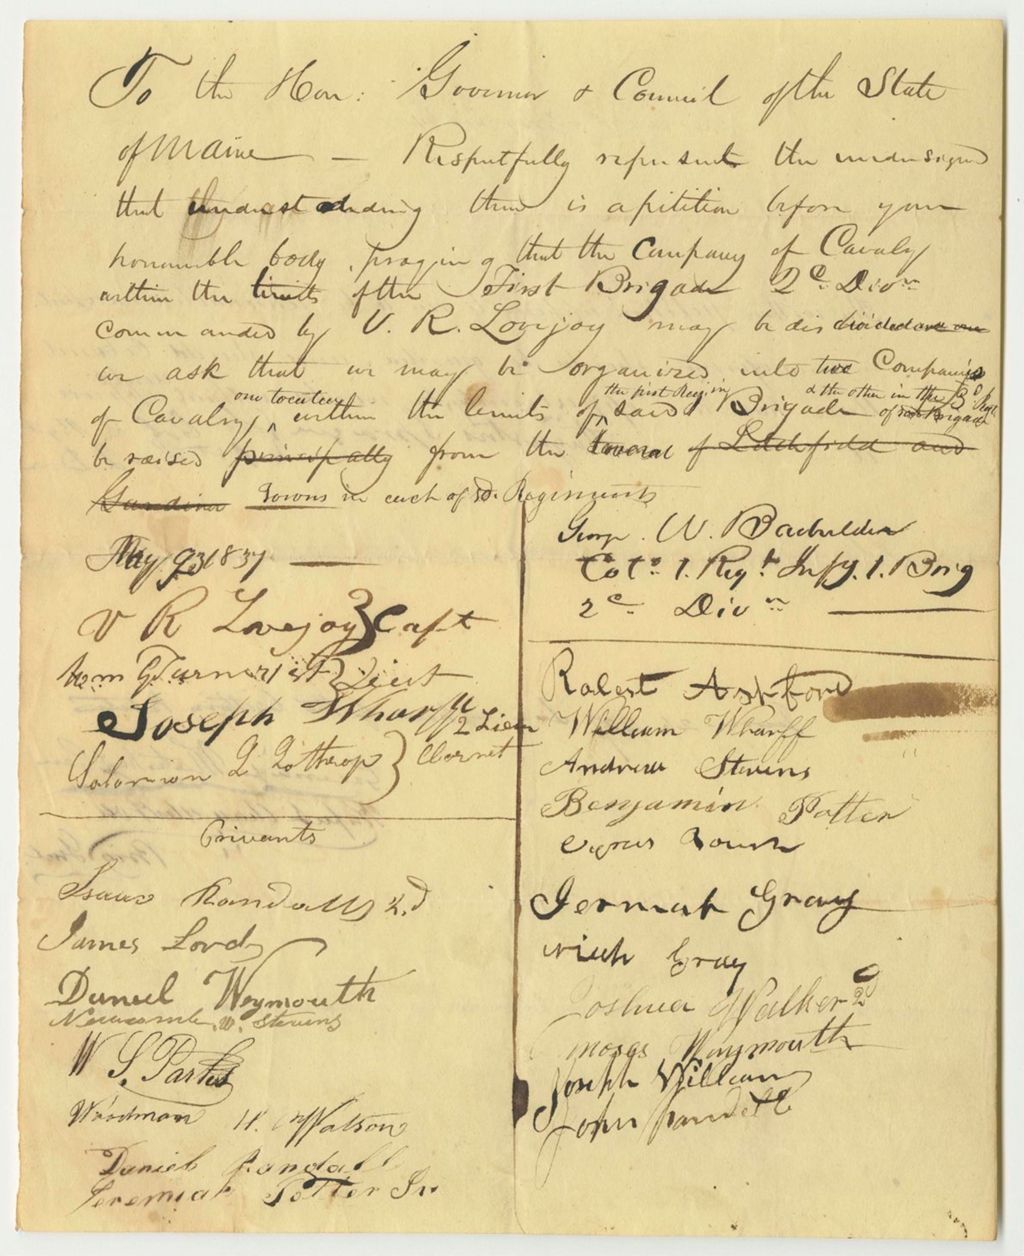 To the Hon: Governor & Council of the State
of Maine — Respectfully represents the undersigned
that understanding there is a petition before your
honourable body praying that the Company of Cavalry
within the limits of the First Brigade 2d Divn
commanded by V. R. Lovejoy may be disdivided and we
we ask that we may be organized into two Companies
one to be
the first Reg in
& the other in the
of Cavalry, within the limits of said Brigade
be raised principally from the several of Litchfield and
Gardiner Towns in each of sd. Regiments
May 1837
V R Lovejoy } Capt
Wm G Turner 1st } Lieut
Joseph Wharff 2 Lieu
Solomon L Lothrop } Cornet
Privants
Isaac Randall 2.d
James Lord
Daniel Weymouth
Newcomb W. Stevens
W S. Parks
Woodman H. Watson
Daniel Randall
Jeremiah Potter Jr.
George W. Bachelder
Col. 1. Regt. Infy. 1. Brig
2d Divn
Robert Ashford
William Wharff
Andrew Stevens
Benjamin Potter
Cyrus
Jermiah Gray
Gray
Joshua Walker 2d
Moses Waymouth
Joseph William
John Randell